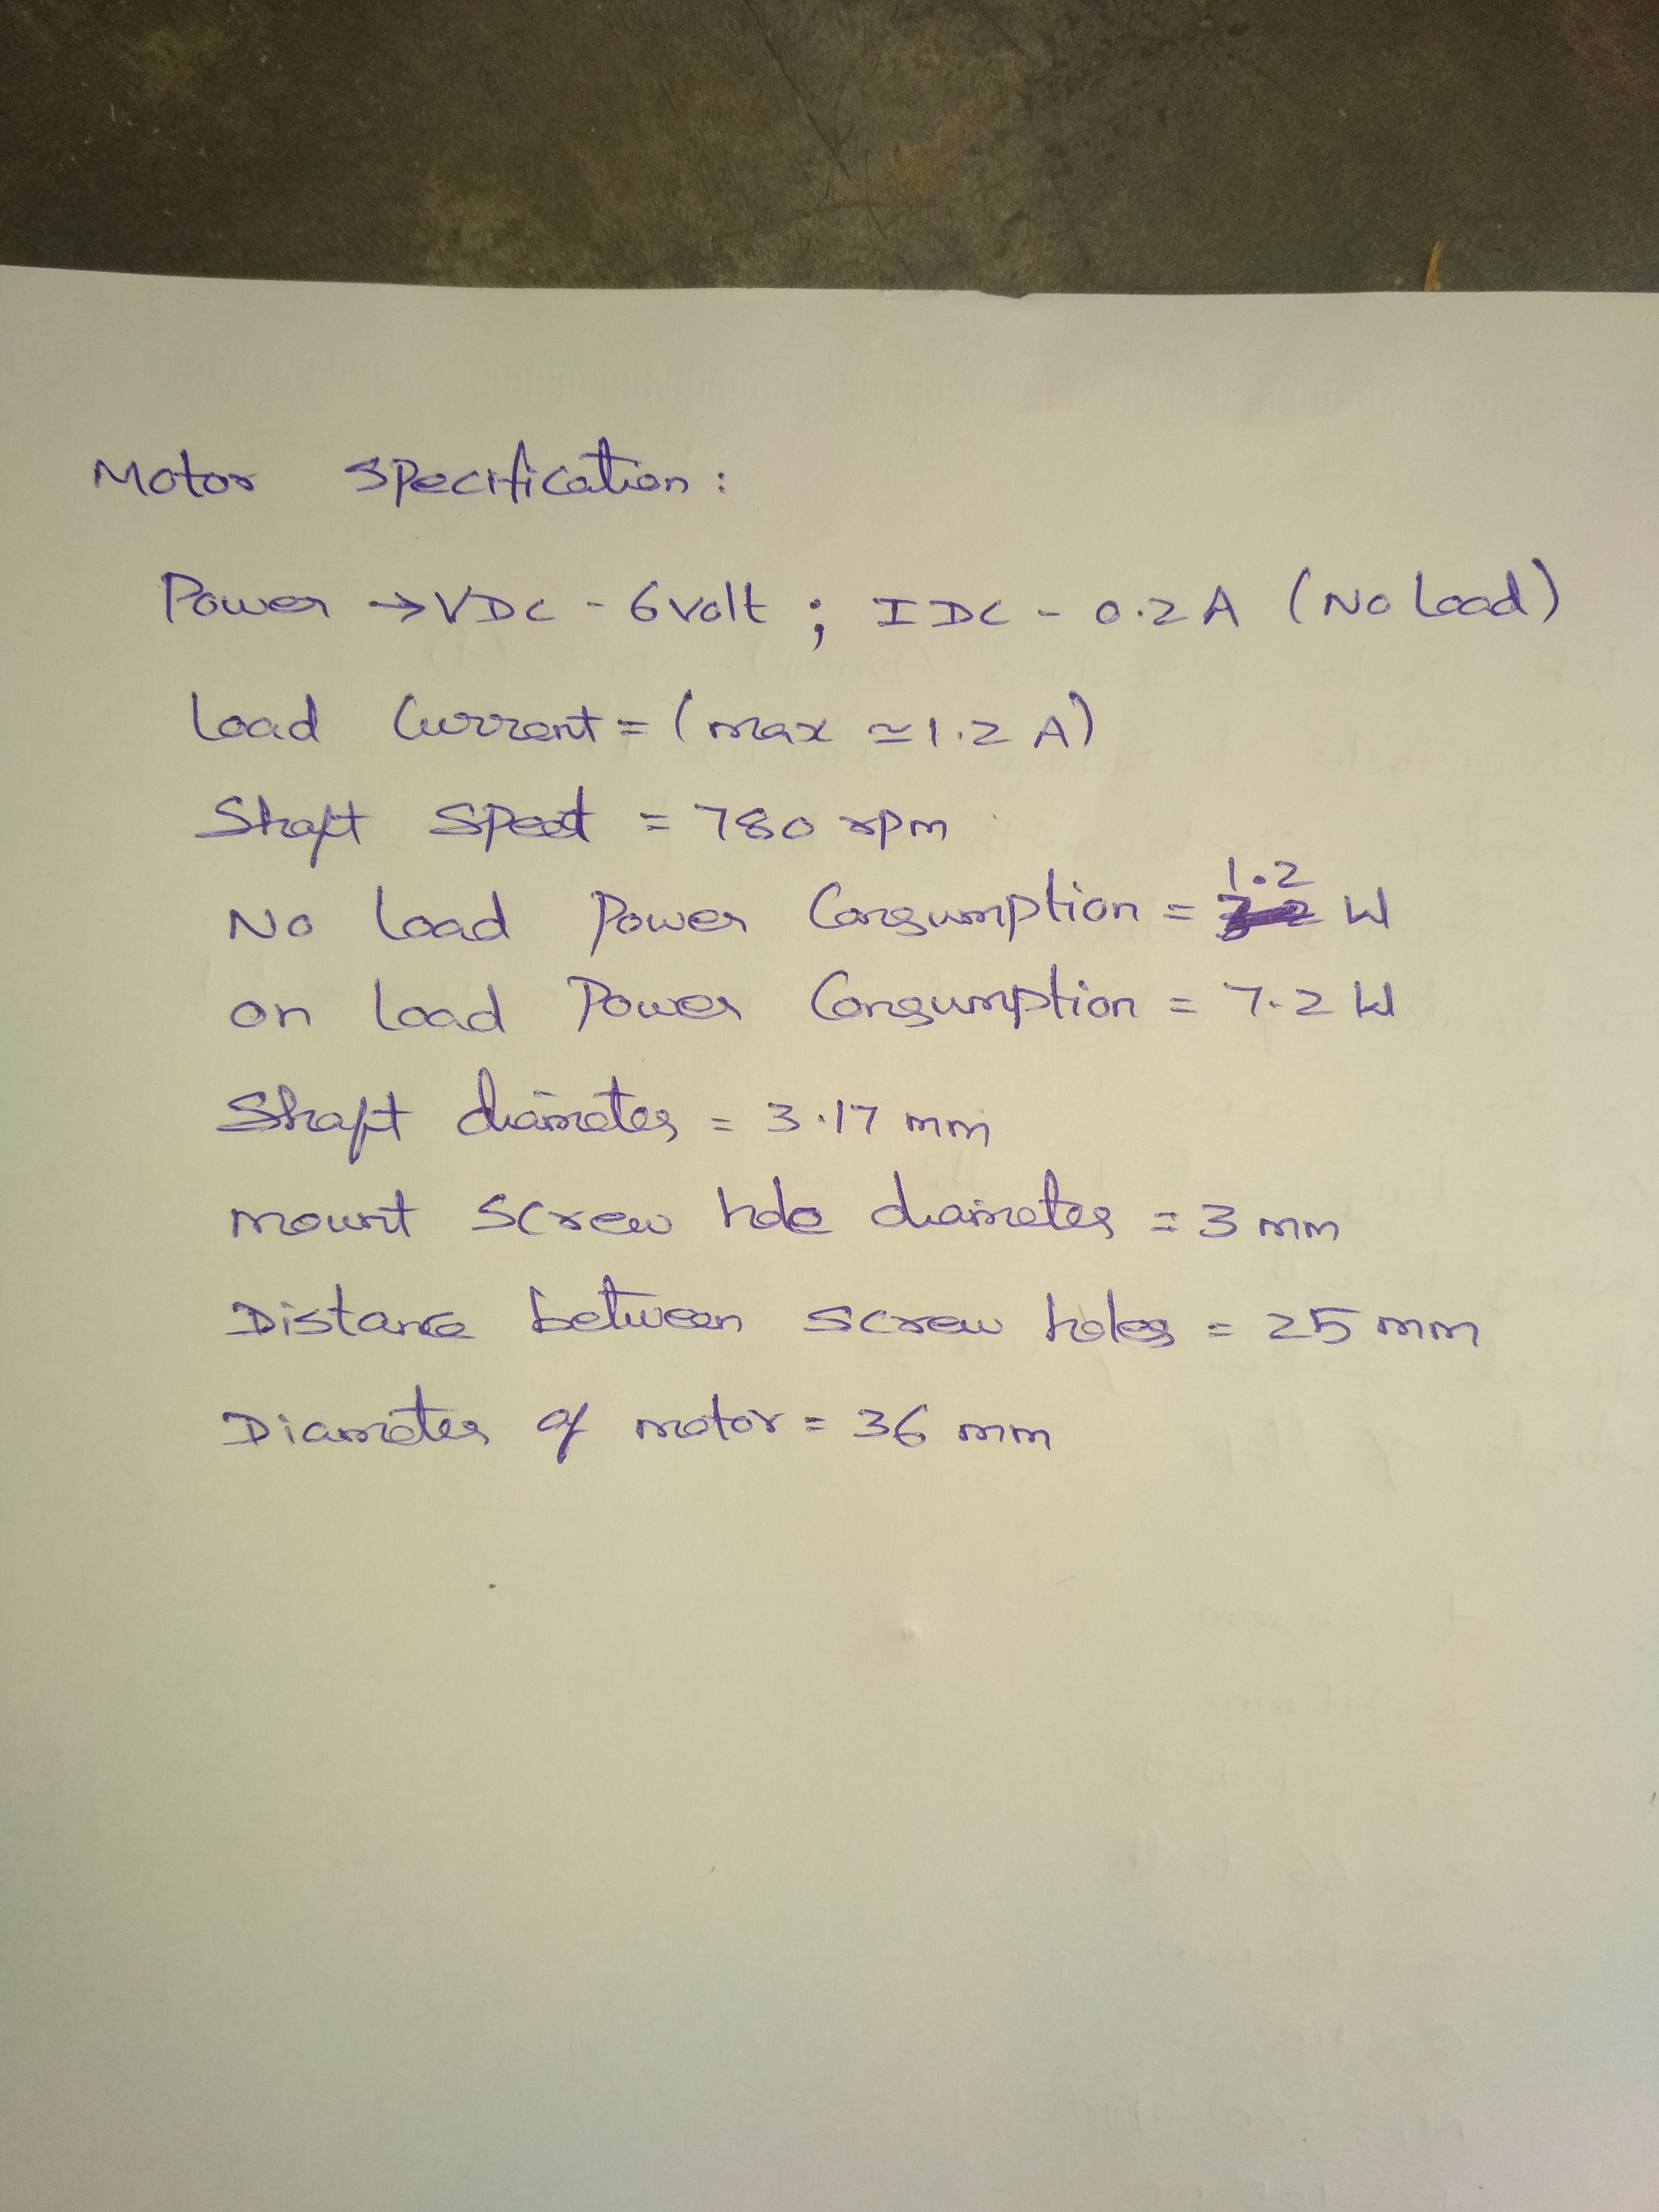 Motor Specification:
Power → VDC - 6 volt ; IDC - 0.2 A (No Load)
Load Current = (max ≃ 1.2 A)
Shaft Speed = 780 rpm
No Load Power Consumption = 1.2 W
on Load Power Consumption = 7.2 W
Shaft diameter = 3.17 mm
mount screw hole diameter = 3 mm
Distance between screw holes = 25 mm
Diameter of motor = 36 mm